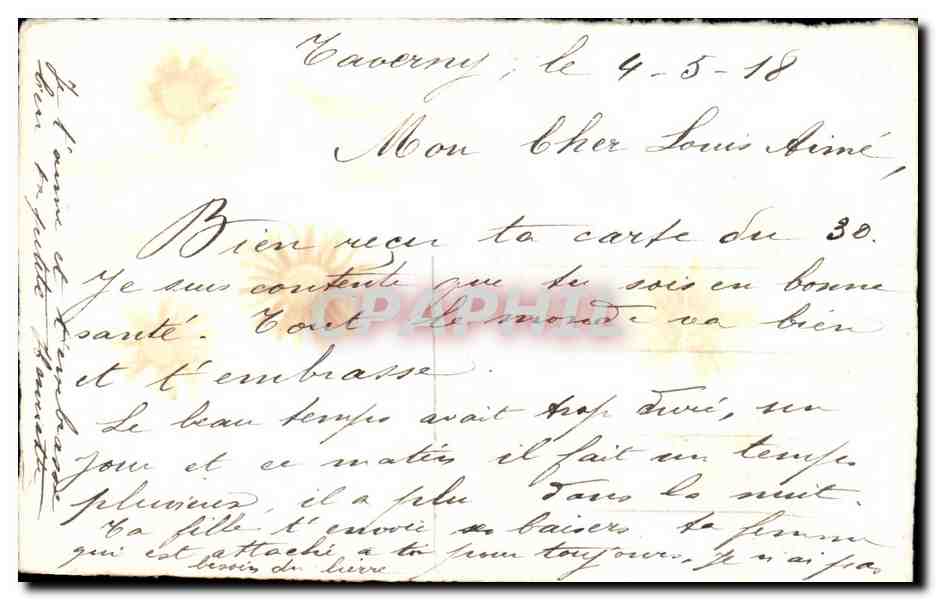 Taverny, le 4-5-18
Mon Cher Louis Aimé,
Bien reçu ta carte du 30.
Je suis contente que tu sois en bonne
santé. Tout le monde va bien
et t'embrasse.
Le beau temps avait trop duré, un
jour et ce matin il fait un temps
pluvieux, il a plu dans la nuit
Ta fille t'envoie ses baisers ta femme
qui est attaché a toi pour toujours, je n'ai pas
besoin du lierre
Je t'aime et t'embrasse
bien ta petite
CPAPHIL